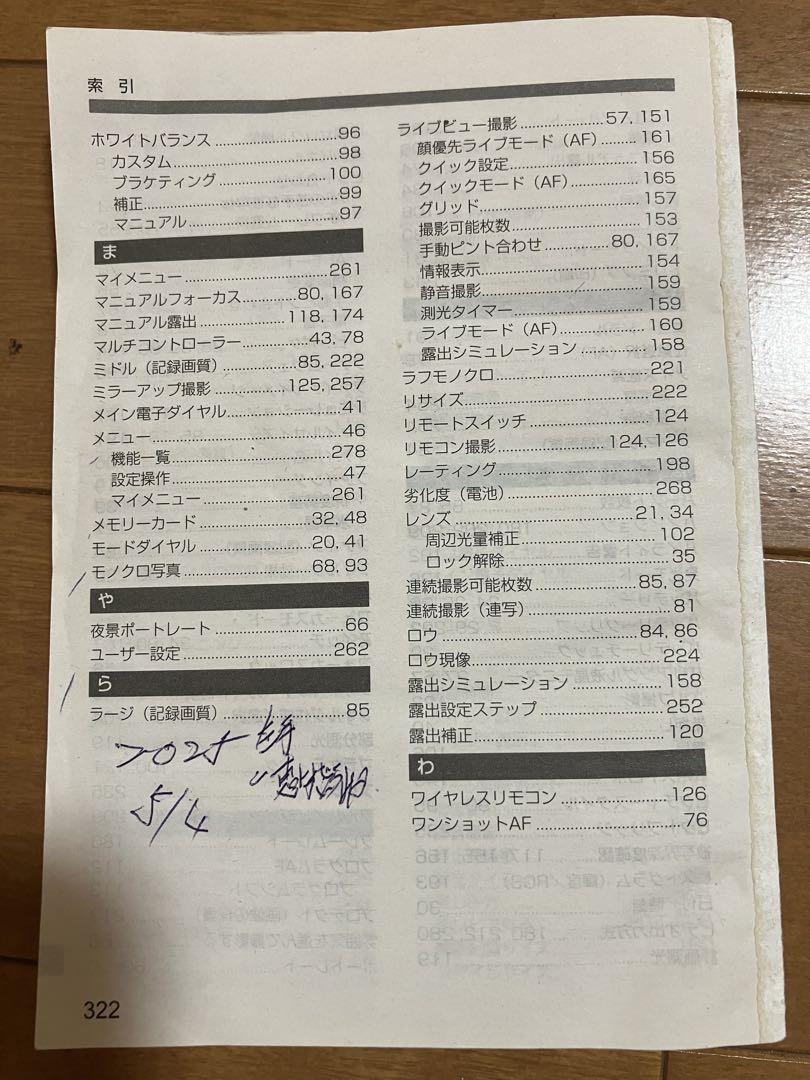 索 引
ホワイトバランス 96
カスタム 98
ブラケティング 100
補正 99
マニュアル 97
ま
マイメニュー 261
マニュアルフォーカス 80, 167
マニュアル露出 118, 174
マルチコントローラー 43, 78
ミドル（記録画質） 85, 222
ミラーアップ撮影 125, 257
メイン電子ダイヤル 41
メニュー 46
機能一覧 278
設定操作 47
マイメニュー 261
メモリーカード 32, 48
モードダイヤル 20, 41
モノクロ写真 68, 93
や
夜景ポートレート 66
ユーザー設定 262
ら
ラージ（記録画質） 85
2025
5/4
ライブビュー撮影 57, 151
顔優先ライブモード（AF） 161
クイック設定 156
クイックモード（AF） 165
グリッド 157
撮影可能枚数 153
手動ピント合わせ 80, 167
情報表示 154
静音撮影 159
測光タイマー 159
ライブモード（AF） 160
露出シミュレーション 158
ラフモノクロ 221
リサイズ 222
リモートスイッチ 124
リモコン撮影 124, 126
レーティング 198
劣化度（電池） 268
レンズ 21, 34
周辺光量補正 102
ロック解除 35
連続撮影可能枚数 85, 87
連続撮影（連写） 81
ロウ 84, 86
ロウ現像 224
露出シミュレーション 158
露出設定ステップ 252
露出補正 120
わ
ワイヤレスリモコン 126
ワンショットAF 76
322